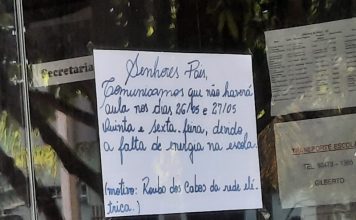 Secretaria
Senhores Pais,
Comunicamos que não haverá
aula nos dias 26/05 e 27/05
Quinta e sexta-feira, devido
a falta de energia na escola.
(motivo: Roubo dos Cabos da rede elé-
trica.)
TRANSPORTE ESCOL
GILBERTO